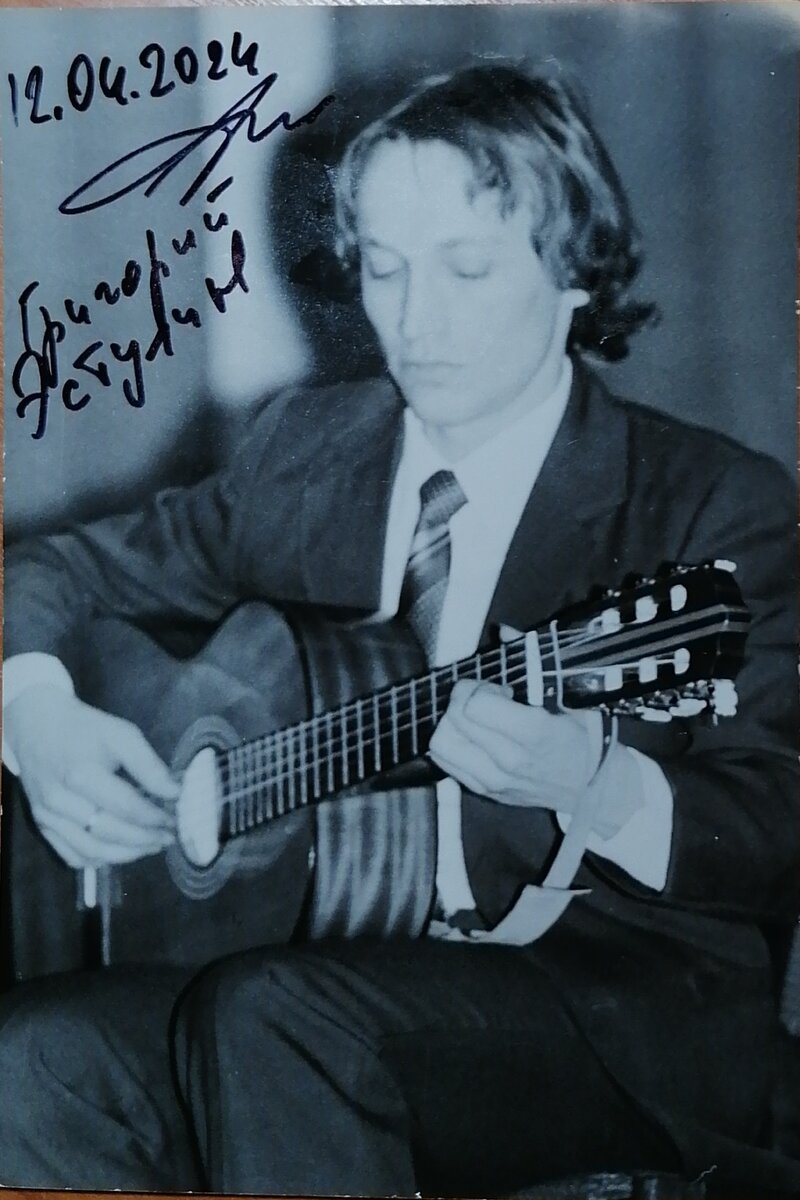 12.04.2024
Григорий
Эстулин